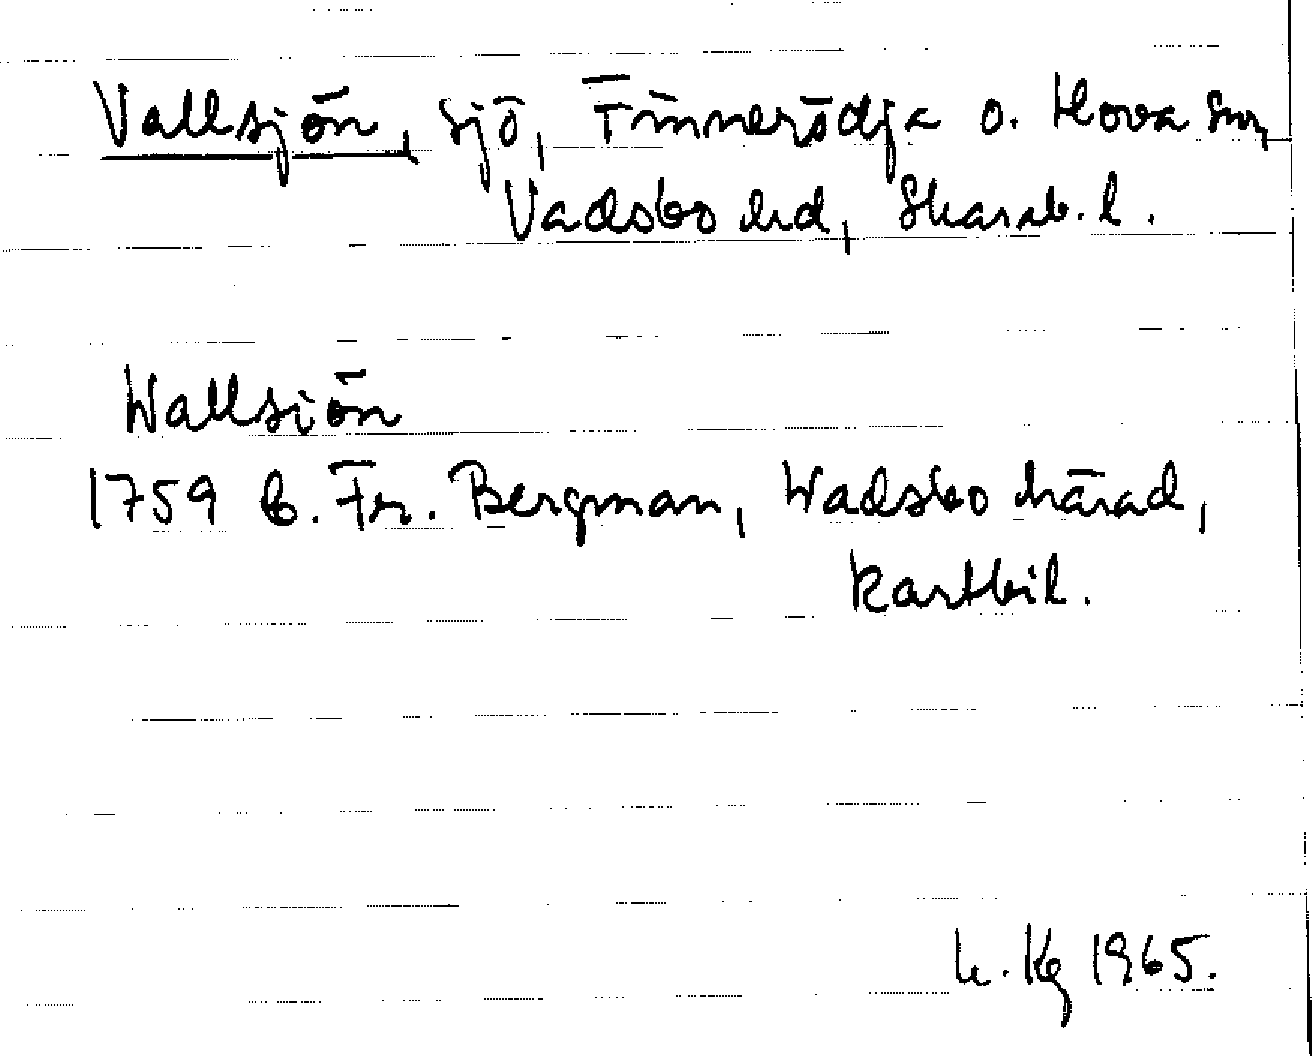 Vallsjön, sjö, Tiveds o. Hova snr,
Vadsbo hd, Skarab. l.
Wallsiön
1759 B. Fr. Bergman, Wadsbo härad,
kartbil.
L. Kg 1965.